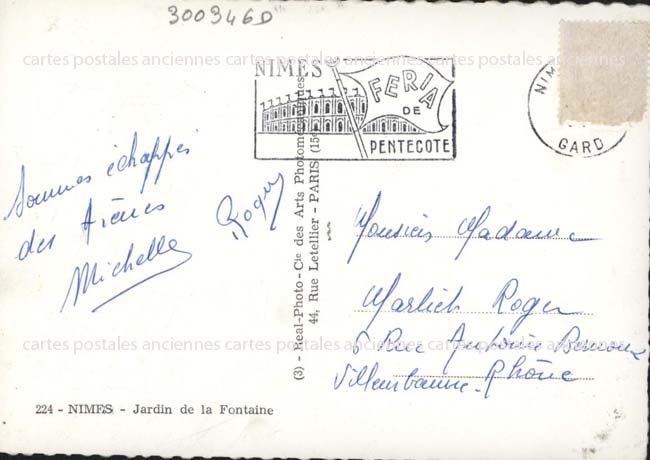 300346D
cartes postales anciennes cartes postales anciennes cartes postales anciennes cartes postales anciennes
NIMES
FERIA
DE
PENTECOTE
NIM
GARD
Sommes échappés
des Arènes
Michelle
Roger
(3) - Real-Photo - Cie des Arts Photomécaniques
44, Rue Letellier - PARIS (15e)
Monsieur Madame
Roger
8 Rue Antoine
Villeurbanne - Rhône
cartes postales anciennes cartes postales anciennes cartes postales anciennes cartes postales anciennes
224 - NIMES - Jardin de la Fontaine